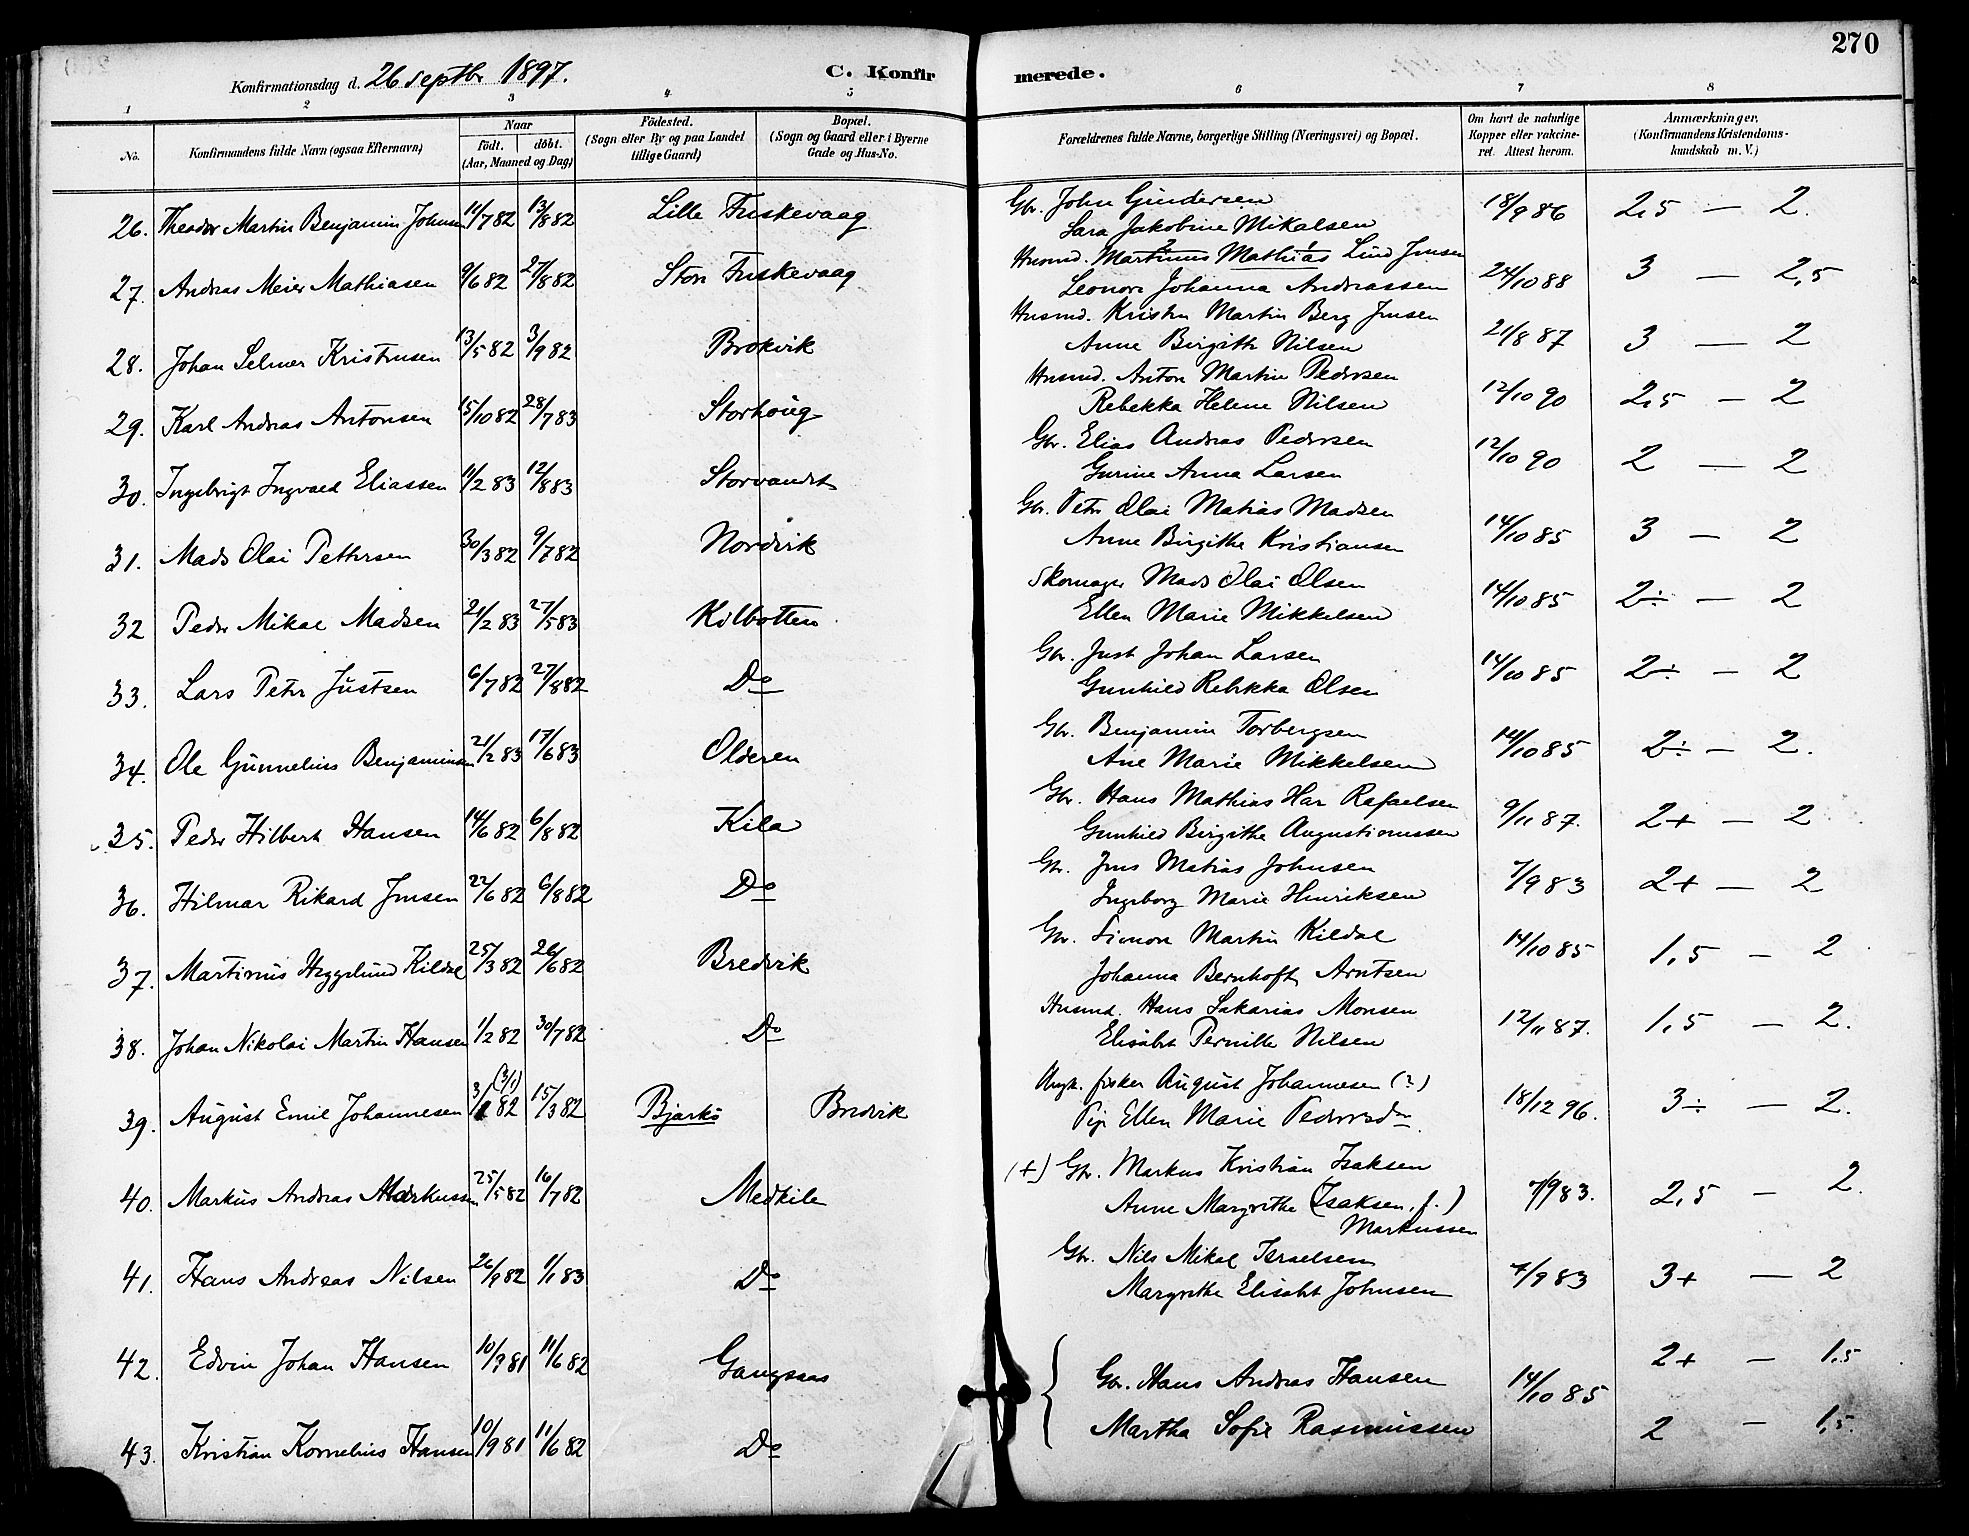 270
Konfirmationsdag d. 26 septbr 1897.
C. Konfirmerede.
1 2 3 4 5 6 7 8
No. Konfirmandens fulde Navn (ogsaa Efternavn) Naar født. døbt. (Aar, Maaned og Dag) Födested. (Sogn eller By og paa Landet tillige Gaard) Bopæl. (Sogn og Gaard eller i Byerne Gade og Hus-No. Forældrenes fulde Navne, borgerlige Stilling (Næringsvei) og Bopæl. Om havt de naturlige Kopper eller vakcineret. Attest herom. Anmærkninger. (Konfirmandens Kristendomskundskab m. V.)
26. Theodor Martin Benjamin Johnsen 11/7 82 13/8 82 Lille Fuskevaag Gbr. John Gundersen 18/9 86 2,5 — 2.
Sara Jakobine Mikalsen
27. Andreas Meier Mathiasen 9/6 82 27/8 82 Store Fuskevaag Husmd. Martinus Mathias Lind Jensen 24/10 88 3 — 2,5
Leonore Johanna Andreassen
28. Johan Selmer Kristensen 13/5 82 3/9 82 Brokvik Husmd. Kristen Martin Berg Jensen 21/8 87 3 — 2
Anne Birgitte Nilsen
29. Karl Andreas Antonsen 15/10 82 28/7 83 Storhoug Husmd. Anton Martin Pedersen 12/10 90 2,5 — 2
Rebekka Helene Nilsen
30. Ingebrigt Ingvald Eliassen 11/2 83 12/8 83 Storvandt Gbr. Elias Andreas Pedersen 12/10 90 2 — 2
Gurine Anna Larsen
31. Mads Olai Pettersen 30/3 82 9/7 82 Nordvik Gbr. Peter Olai Matias Madsen 14/10 85 3 — 2
Anne Birgithe Kristiansen
32 Peder Mikal Madsen 21/2 83 27/5 83 Kilbotten Skomager Mads Olai Olsen 14/10 85 2÷ — 2
Ellen Marie Mikkelsen
33. Lars Peter Justsen 6/7 82 27/8 82 Do Gbr. Just Johan Larsen 14/10 85 2÷ — 2
Gunhild Rebekka Olsen
34. Ole Gunnelius Benjaminsen 21/2 83 17/6 83 Olderen Gbr. Benjamin Torbergsen 14/10 85 2÷ — 2.
Ane Marie Mikkelsen
35. Peder Hilbert Hansen 14/6 82 6/8 82 Kila Gbr. Hans Mathias Har Rafaelsen 9/11 87. 2+ — 2
Gunhild Birgithe Augustinussen
36. Hilmar Rikard Jensen 22/6 82 6/8 82 Do Gbr. Jens Matias Johnsen 7/9 83 2+ — 2
Ingeborg Marie Henriksen
37. Martinus Heggelund Kildal 25/3 82 26/6 82 Bredvik Gbr. Simon Martin Kildal 14/10 85 1,5 — 2
Johanna Bernhoft Arntsen
38. Johan Nikolai Martin Hansen 1/2 82 30/7 82 Do Husmd. Hans Sakarias Monsen 12/11 87. 1,5 — 2.
Elisabet Pernille Nilsen
39. August Emil Johannesen 3/1 82 (3/1) 15/3 82 Bjarkö Bredvik Ungk. fisker August Johannesen (?) 18/12 96. 3÷ — 2.
Pige Ellen Marie Pedersdr.
40. Markus Andreas Markussen 25/5 82 16/7 82 Medkila (+) Gbr. Markus Kristian Isaksen 7/9 83. 2,5 — 2.
Anne Margrethe (Isaksen, f.)
Markussen
41. Hans Andreas Nilsen 26/9 82 1/1 83 Do Gbr. Nils Mikal Israelsen 7/9 83 3+ — 2
Margrethe Elisabet Johnsen
42. Edvin Johan Hansen 10/9 81 11/6 82 Gangsaas Gbr. Hans Andreas Hansen 14/10 85 2+ — 1,5
43. Kristian Kornelius Hansen 10/9 81 11/6 82 Do Martha Sofie Rasmussen 2 — 1,5.